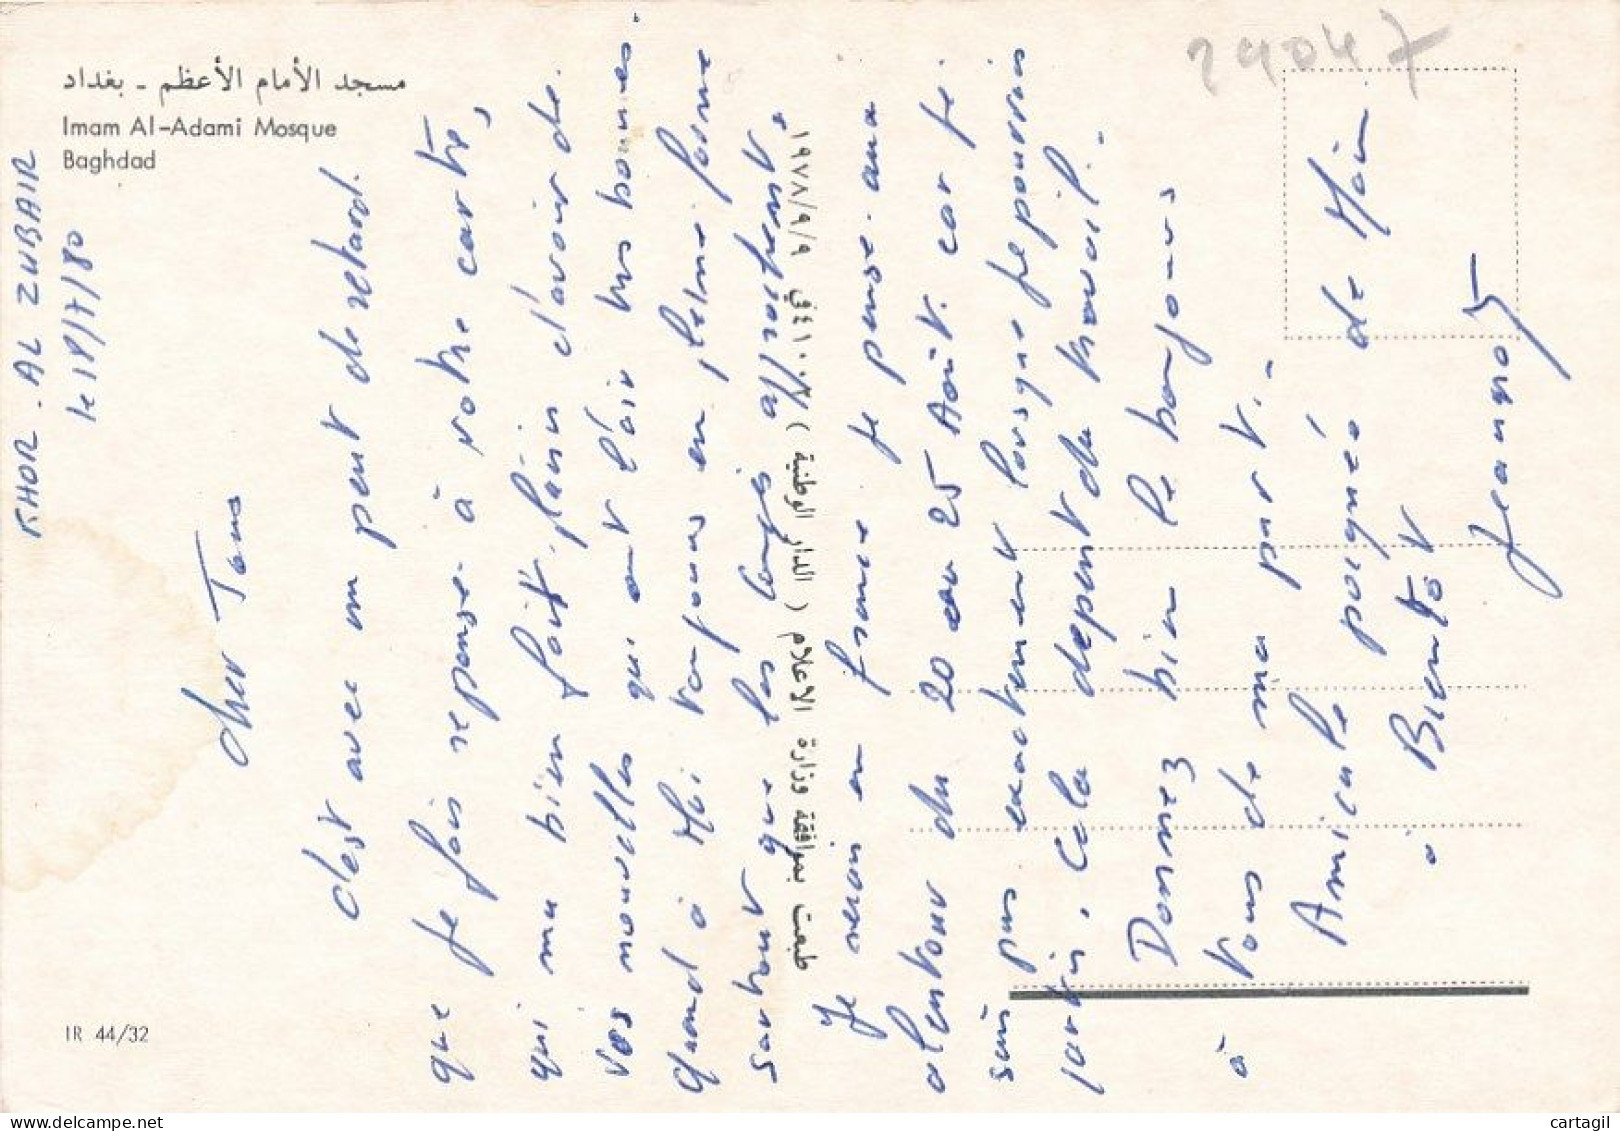 مسجد الأمام الأعظم - بغداد
Imam Al-Adami Mosque
Baghdad
IR 44/32
29047
طبعت بموافقة وزارة الاعلام ( الدار الوطنية ) ٤١٠٠٢ في ١٩٧٨/٩/٩
KHOR. AL ZUBAIR
le 18/7/80
cher Tous
c'est avec un peut de retard.
que je fais reponse à votre carte,
qui ma bien fait plaisir d'avoir de.
vos nouvelles qui ont l'air très bonnes.
Quand à Moi toujours en pleine forme
surtout que les congés approchent.
Je serai en france je pense. aux
alentour du 20 au 25 Août. car je.
sais pas exactement lorsque je pourrais
partir, Cela depent du travail.-
Donnez bien le bonjours
à tous de ma part.-
Amicale poigneé de Main.
à Bientôt